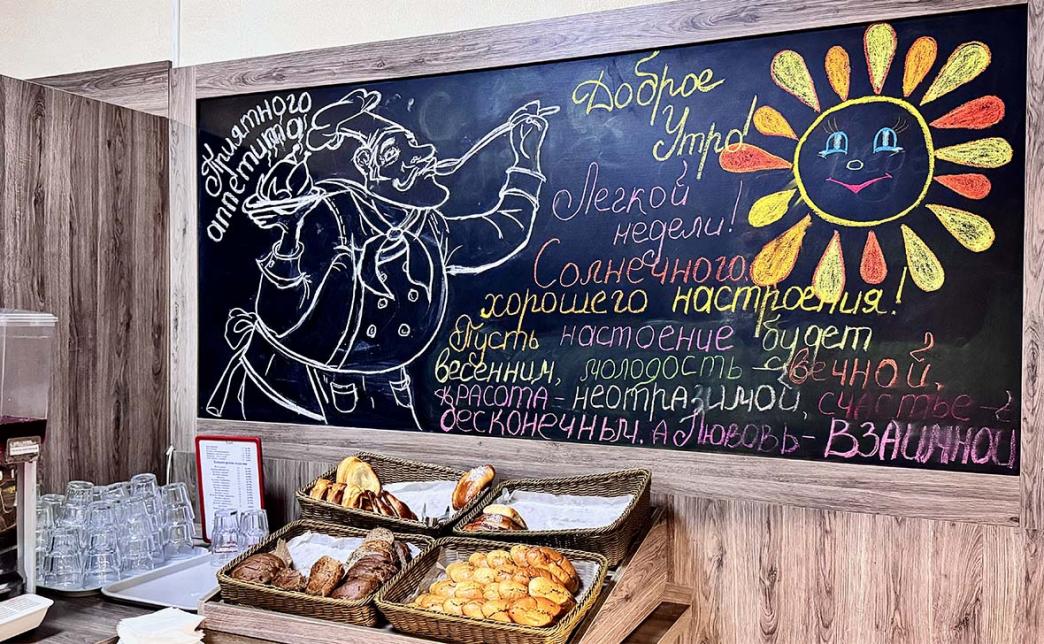 Приятного
аппетита!
Доброе
Утро!
Легкой
недели!
Солнечного,
хорошего настроения!
Пусть настоение будет
весенним, молодость - вечной,
красота - неотразимой, счастье -
бесконечным. а Любовь - ВЗАИМНОЙ